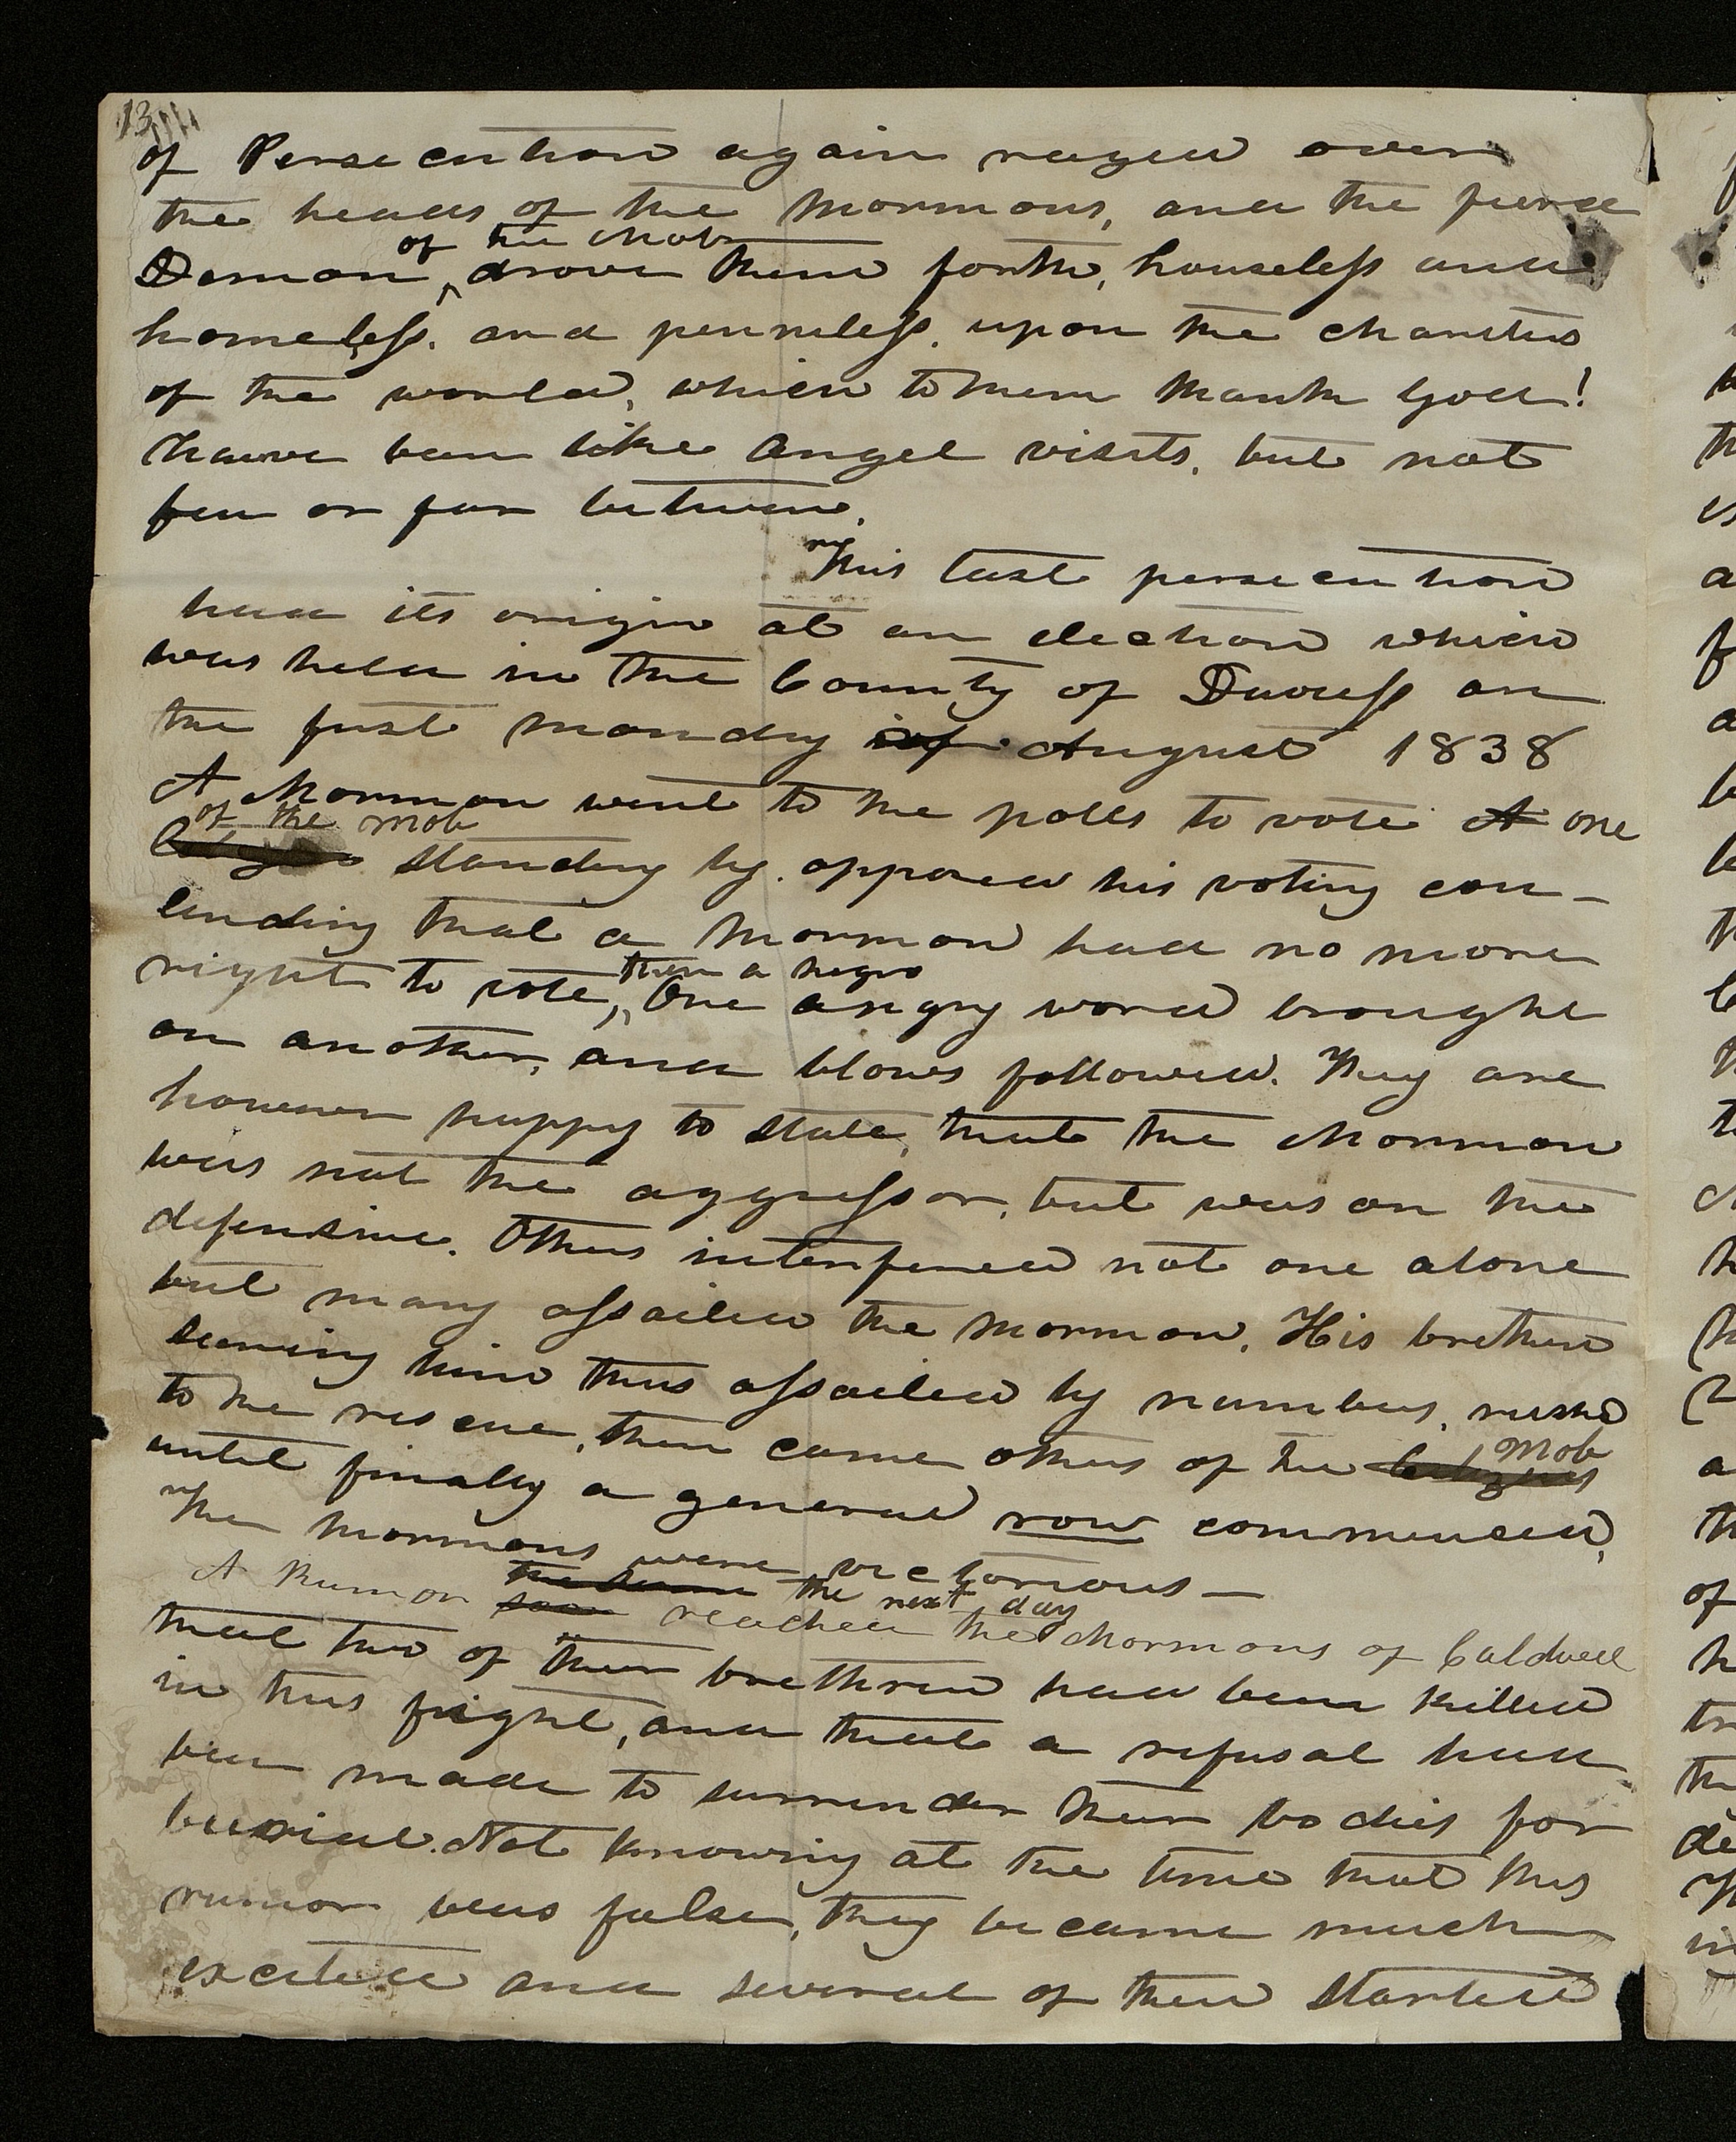 13
of Persecution again raged over
the heads of the Mormons, and the fierce
of the Mob
Demon drove them forth, houseless and
homeless, and penniless, upon the charities
of the world, which to them thank God!
have been like Angel visits, but not
few or far between.
This last persecution
had its origin at an election which
was held in the County of Daviess on
the first monday of August 1838
A Mormon went to the polls to vote A one
of the mob
Citizen standing by opposed his voting con-
tending that a Mormon had no more
than a negro
right to vote, One angry word brought
on another, and blows followed. They are
however happy to state, that the Mormon
was not the aggressor, but was on the
defensive. Others interfered not one alone
but many assailed the Mormon. His brethren
seeing him thus assailed by numbers, rushed
Mob
to the rescue, then came others of the Citizens
until finally a general row commenced,
The Mormons were victorious —
the next day
A Rumor soon reached the Mormons of Caldwell
that two of their brethren had been killed
in this fight, and that a refusal had
been made to surrender their bodies for
burial. Not knowing at the time that this
rumor was false, they became much
excited and several of them started